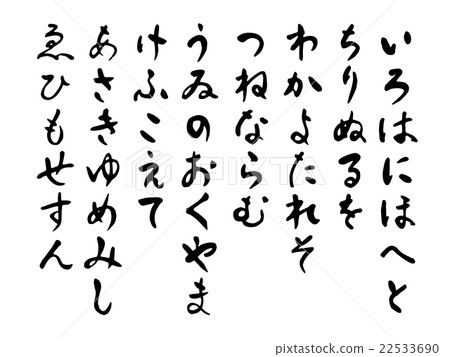 いろはにほへと
ちりぬるを
わかよたれそ
つねならむ
うゐのおくやま
けふこえて
あさきゆめみし
ゑひもせすん
22533690